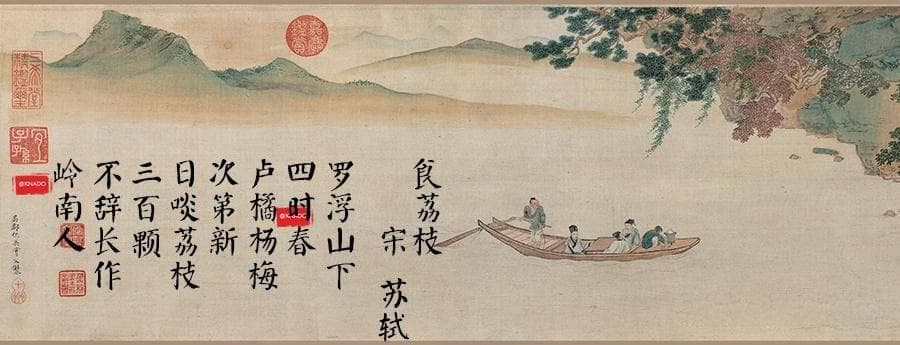 食荔枝
宋 苏轼
罗浮山下
四时春
卢橘杨梅
次第新
日啖荔枝
三百颗
不辞长作
岭南人
@KNADO
@KNADO